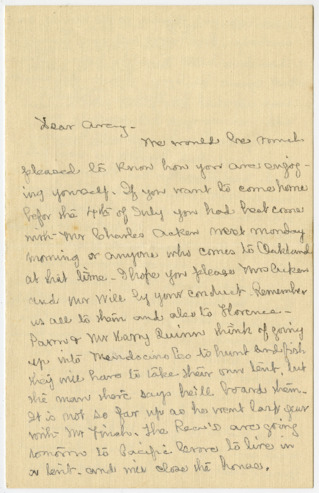 Dear Avery-
We would be much
pleased to know how you are enjoy-
ing yourself. If you want to come home
befor the 4th of July you had best come
with Mr Charles Aiken next Monday
morning or anyone who comes to Oakland
at that time. I hope you please Mrs Aiken
and Mr Will by your conduct. Remember
us all to them and also to Florence-
& Mr Harry Quinn think of going
up into Mendocino Co to hunt and fish
they will have to take their own tent, but
the man there says he'll board them.
It is not so far up as he went last year
with Mr Finch. The are going
tomorrow to Pacific Grove to live in
a tent. and will close the house.